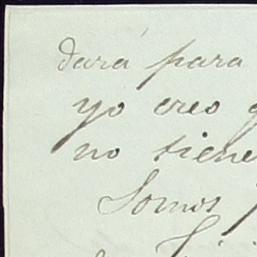 dará para
yo creo
no tiene
Somos